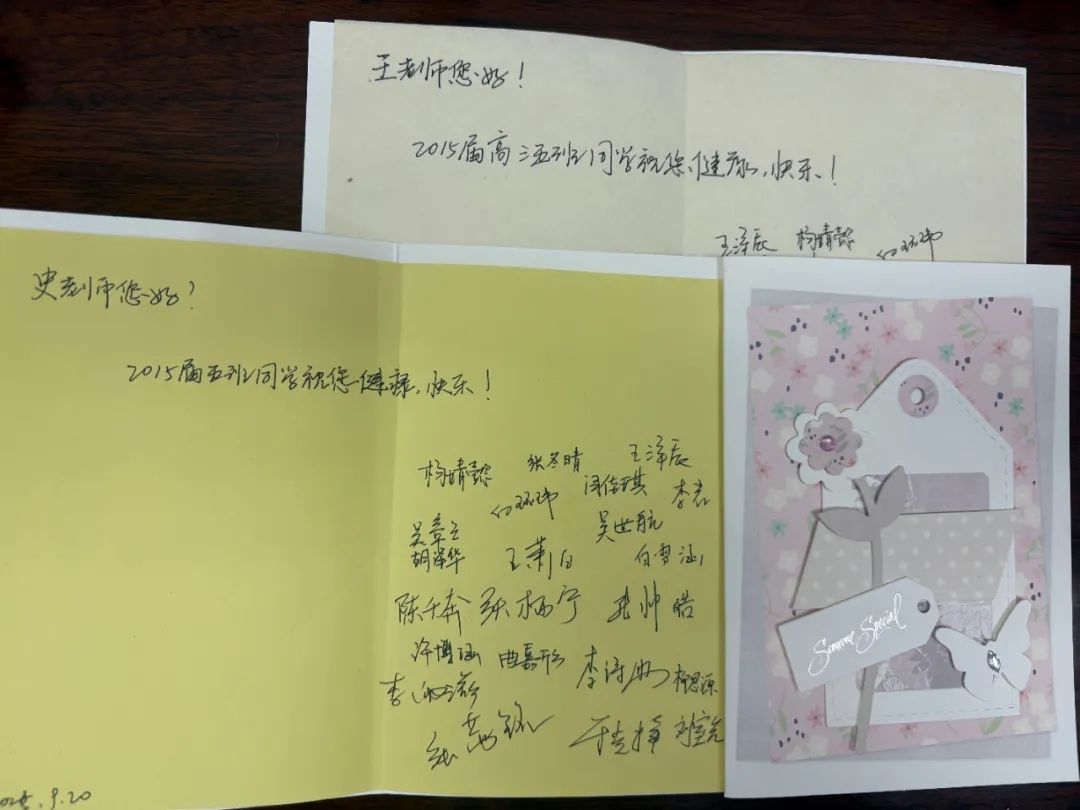 王老师您好！
2015届高三五班同学祝您健康、快乐！
王泽辰 杨晴懿
史老师您好！
2015届五班同学祝您健康、快乐！
杨晴懿 张冬晴 王泽辰
闫佳琪 李
吴章 吴世航
胡泽华 王萧 白雪涵
陈千奔 张栖宁 帅皓
许博涵 曲嘉欣 李诗 柳思源
李
9.20
Someone Special